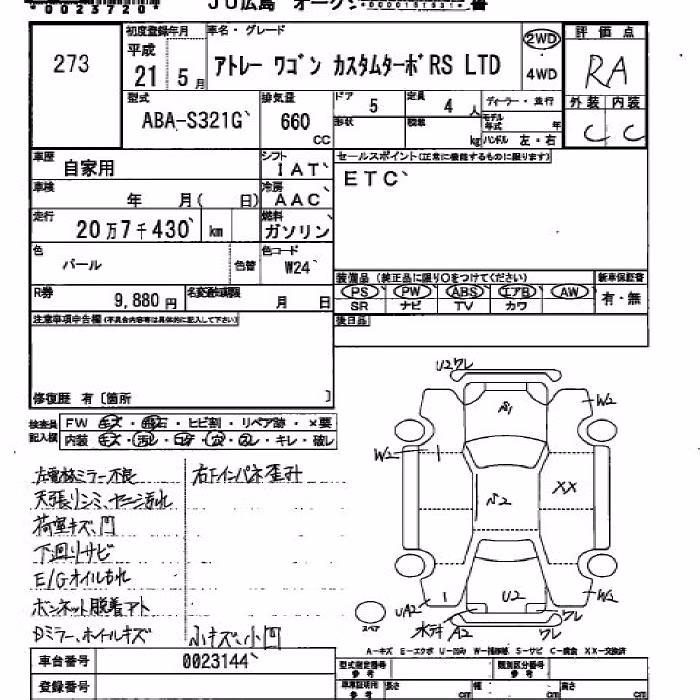 0023720
JU広島 オークション
273
初度登録年月
平成
21 5月
車名・グレード
アトレー ワゴン カスタムターボRS LTD
2WD
4WD
評価点
RA
外装 内装
C C
型式
ABA-S321G
排気量
660 CC
ドア 5
定員 4 人
形状
積載 kg
ディーラー・並行
モデル年式 年
ハンドル 左・右
車歴 自家用
シフト IAT
セールスポイント(正常に機能するものに限ります)
ETC
車検 年 月( 日)
冷房 AAC
走行 20万7千430 km
燃料 ガソリン
色 パール
色替
色コード W24
R券 9,880円
名変通知期限 月 日
装備品(純正品に限り○をつけてください)
PS PW ABS エアB AW
SR ナビ TV カワ
新車保証書
有・無
注意事項申告欄(不具合内容等は具体的に記入して下さい)
後日品
修復歴 有〔箇所 〕
検査員記入欄
FW キズ・飛石・ヒビ割・リペア跡・×要
内装 キズ・汚れ・コゲ・穴・スレ・キレ・破レ
左電格ミラー不良
右下インパネ歪み
天張りシミ、ヤニ汚れ
荷室キズ、凹
下廻りサビ
E/Gオイルもれ
ボンネット脱着アト
Dミラー、ホイルキズ
小キズ、小凹
U2ワレ
W2
W2
A1
A2
XX
W2
UA2
U2
水アカ
A2
ワレ
ワレ
スペア
A-キズ E-エクボ U-凹み W-補修跡 S-サビ C-腐食 XX-交換済
車台番号 0023144
登録番号
型式指定番号
類別区分番号
車庫証明用参考
長さ cm
幅 cm
高さ cm